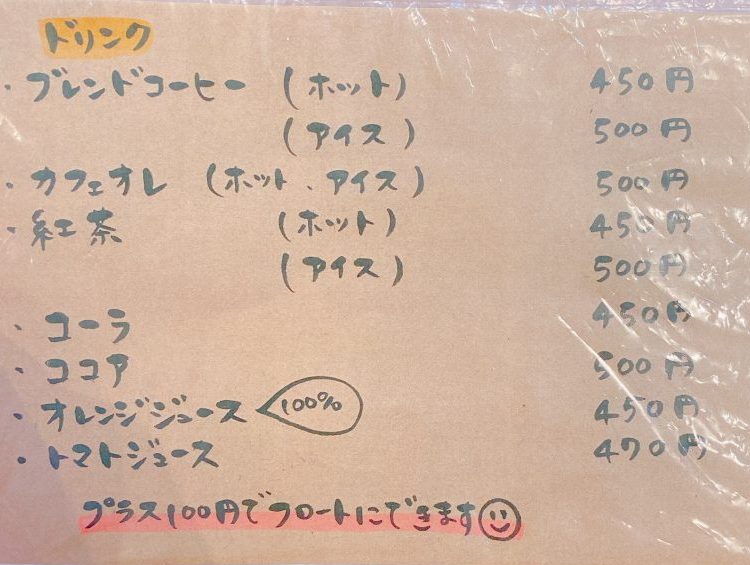 ドリンク
・ブレンドコーヒー (ホット) 450円
(アイス) 500円
・カフェオレ (ホット、アイス) 500円
・紅茶 (ホット) 450円
(アイス) 500円
・コーラ 450円
・ココア 500円
・オレンジジュース 100% 450円
・トマトジュース 470円
プラス100円でフロートにできます